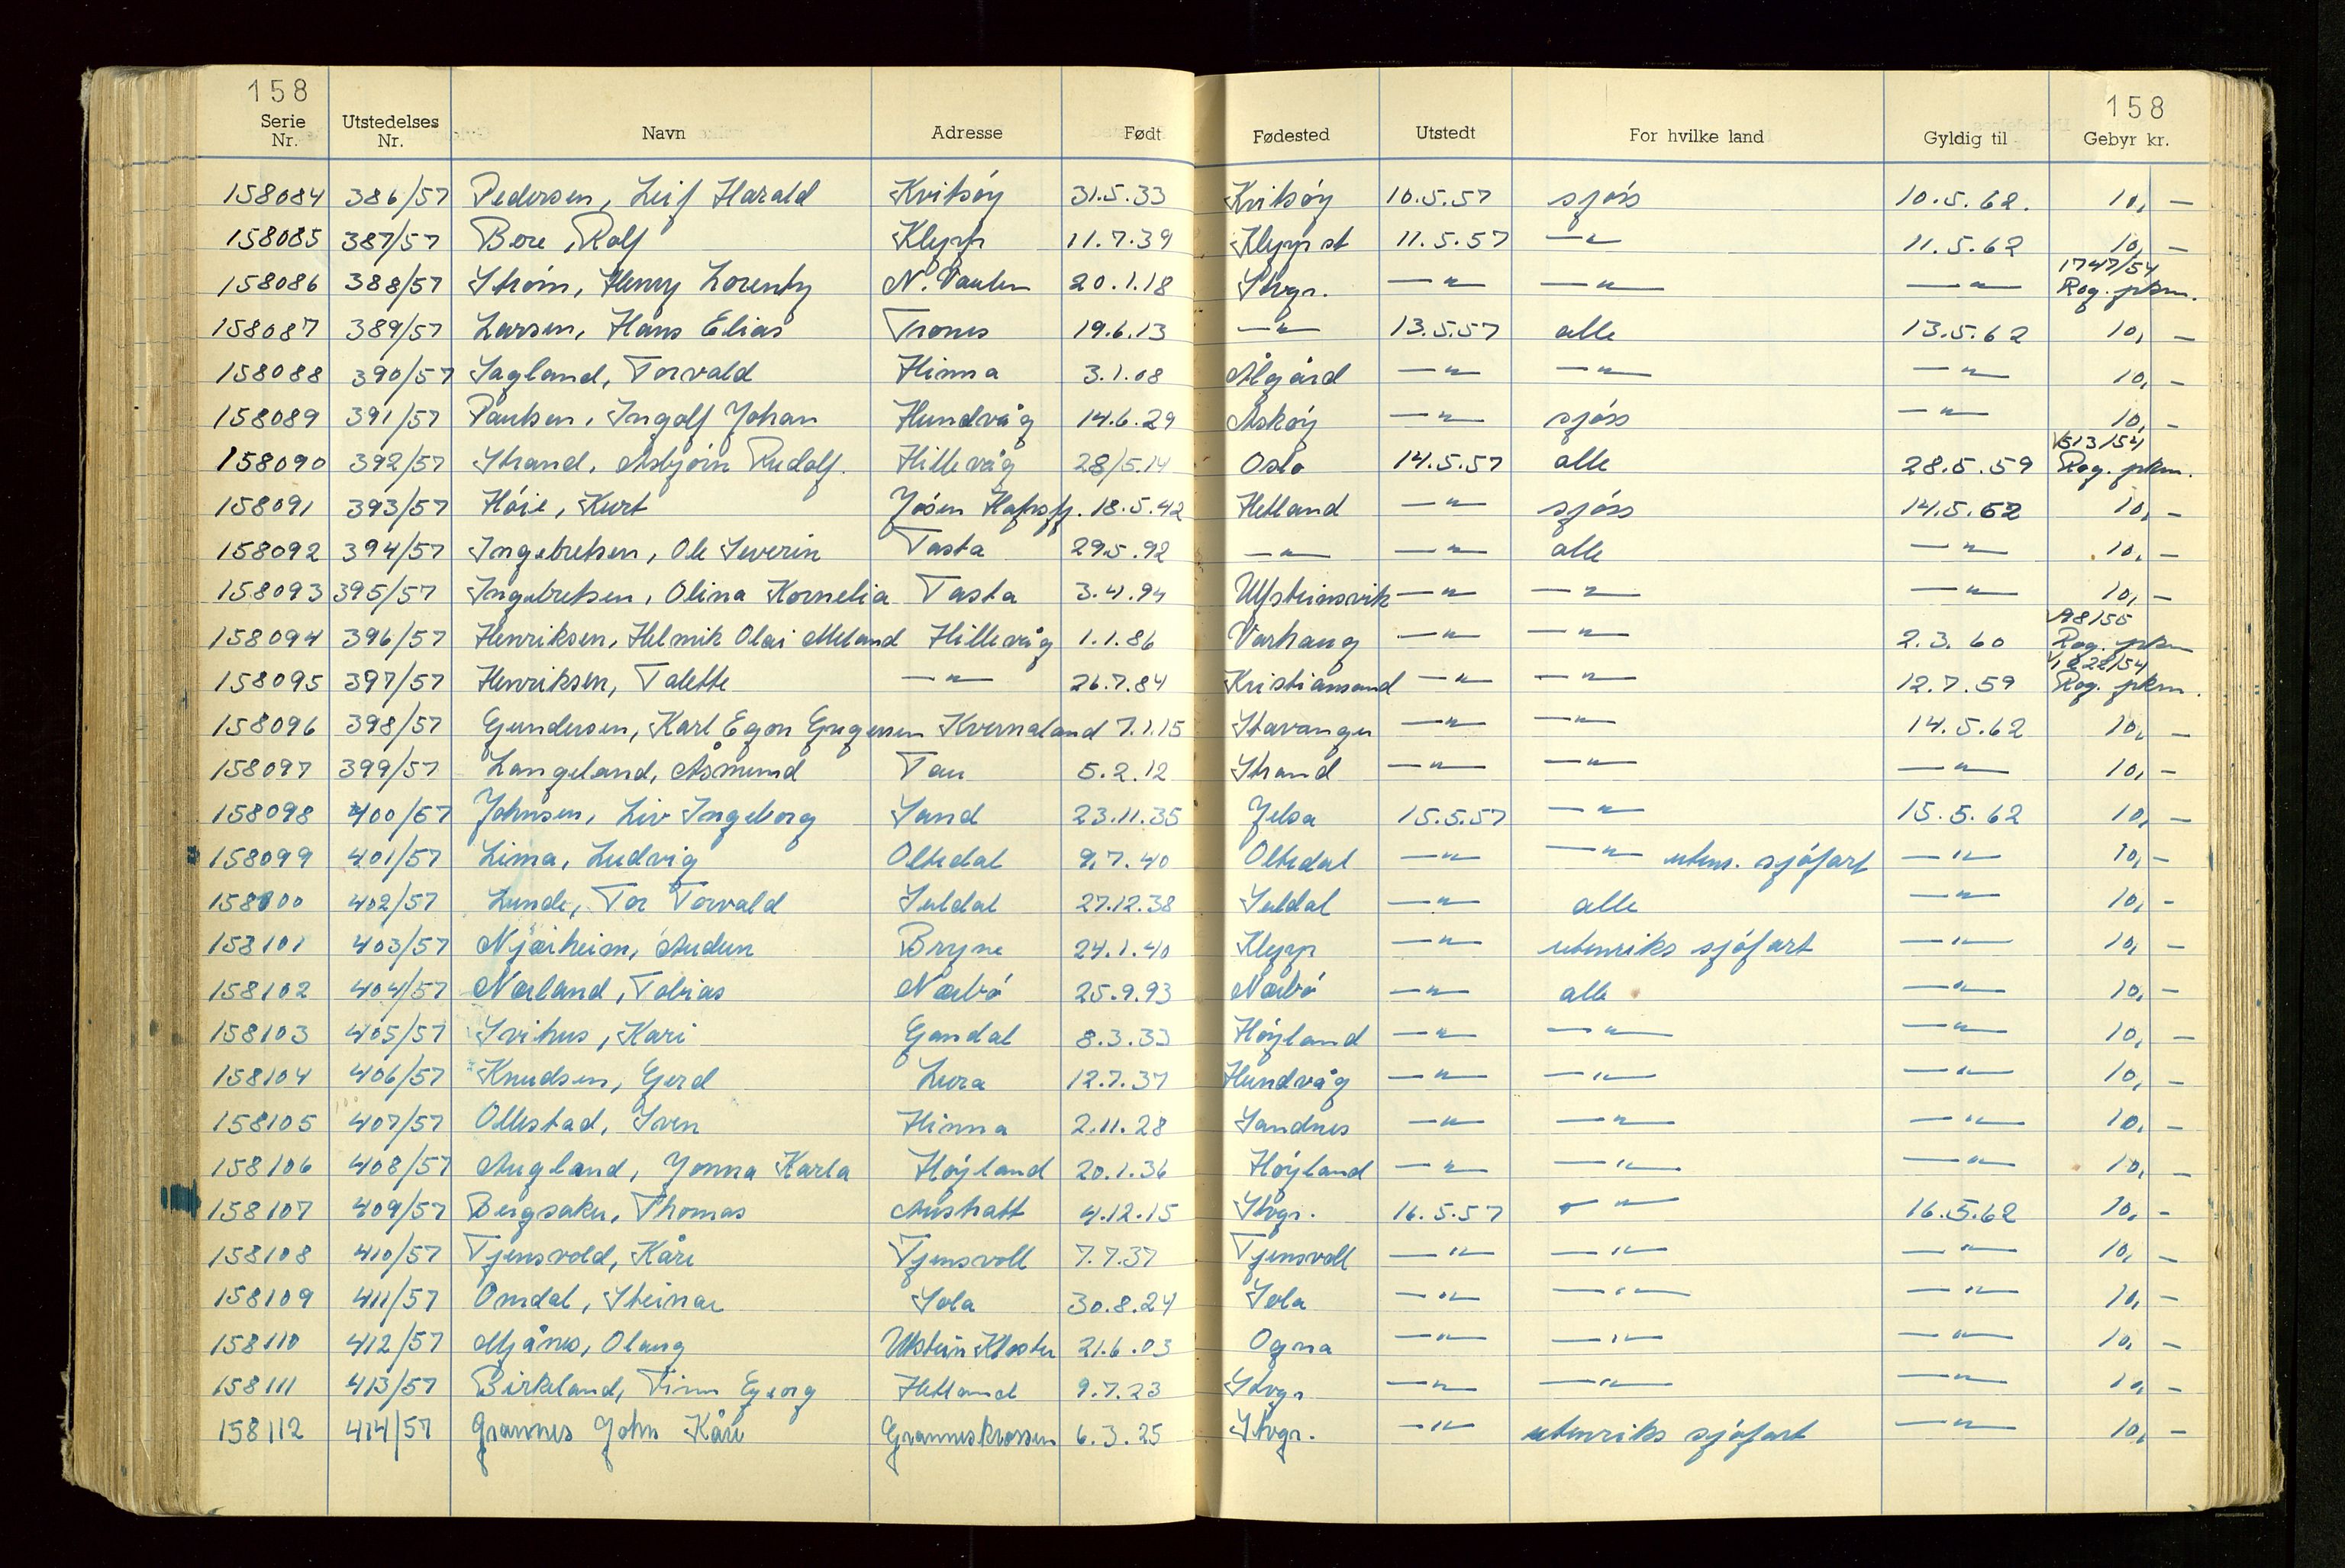 158
158
Serie Nr. Utstedelses Nr. Navn Adresse Født Fødested Utstedt For hvilke land Gyldig til Gebyr kr.
158084 386/57 Pedersen, Leif Harald Kvitsöy 31.5.33 Kvitsöy 10.5.57 sjöis 10.5.62. 10,-
158085 387/57 Bore, Rolf Klepp 11.7.39 Klepp st 11.5.57 —"— 11.5.62 10,-
158086 388/57 Ström, Henry Lorentz N. Vaulen 20.1.18 Stvgr. —"— —"— —"— 1747/54 Rog. pkm.
158087 389/57 Larsen, Hans Elias Trones 19.6.13 —"— 13.5.57 alle 13.5.62 10,-
158088 390/57 Sagland, Torvald Hinna 3.1.08 Ålgård —"— —"— —"— 10,-
158089 391/57 Paulsen, Ingolf Johan Hundvåg 14.6.29 Asköy —"— sjöss —"— 10,-
158090 392/57 Strand, Asbjörn Rudolf. Hillevåg 28/5.14 Oslo 14.5.57 alle 28.5.59 1513/54 Rog. pkm.
158091 393/57 Höie, Kurt Jåsen Hafrsfj. 18.5.42 Hetland —"— sjöss 14.5.62 10,-
158092 394/57 Ingebretsen, Ole Severin Tasta 29.5.92 —"— —"— alle —"— 10,-
158093 395/57 Ingebretsen, Olina Kornelia Tasta 3.4.94 Ulfsteinsvik —"— —"— —"— 10,-
158094 396/57 Henriksen, Helmik Olai Meland Hillevåg 1.1.86 Varhaug —"— —"— 2.3.60 98/55 Rog. pkm
158095 397/57 Henriksen, Talette —"— 26.7.84 Kristiansand —"— —"— 12.7.59 1222/54 Rog. pkm.
158096 398/57 Gundersen, Karl Egon Kvernaland 7.1.15 Stavanger —"— —"— 14.5.62 10,-
158097 399/57 Langeland, Åsmund Tau 5.2.12 Strand —"— —"— —"— 10,-
158098 400/57 Johnsen, Liv Ingeborg Sand 23.11.35 Jelsa 15.5.57 —"— 15.5.62 10,-
158099 401/57 Lima, Ludvig Oltedal 9.7.40 Oltedal —"— —"— utenr. sjöfart —"— 10,-
158100 402/57 Lunde, Tor Torvald Suldal 27.12.38 Suldal —"— alle —"— 10,-
158101 403/57 Njærheim, Audun Bryne 24.1.40 Klepp —"— utenriks sjöfart —"— 10,-
158102 404/57 Nærland, Tobias Nærbö 25.9.93 Nærbö —"— alle —"— 10,-
158103 405/57 Svihus, Kari Gandal 8.3.33 Höyland —"— —"— —"— 10,-
158104 406/57 Knudsen, Gerd Lura 12.7.37 Hundvåg —"— —"— —"— 10,-
158105 407/57 Ollestad, Sven Hinna 2.11.28 Sandnes —"— —"— —"— 10,-
158106 408/57 Augland, Jonna Karla Höyland 20.1.36 Höyland —"— —"— —"— 10,-
158107 409/57 Bergsaker, Thomas Austratt 4.12.15 Stvgr. 16.5.57 —"— 16.5.62 10,-
158108 410/57 Tjensvold, Kåre Tjensvoll 7.7.37 Tjensvoll —"— —"— —"— 10,-
158109 411/57 Omdal, Steinar Sola 30.8.24 Sola —"— —"— —"— 10,-
158110 412/57 Mjånes, Olaug Utstein Kloster 21.6.03 Ogna —"— —"— —"— 10,-
158111 413/57 Birkeland, Finn Georg Hetland 9.7.23 Stvgr —"— —"— —"— 10,-
158112 414/57 Grannes John Kåre Granneskrossen 6.3.25 Stvgr. —"— utenriks sjöfart —"— 10,-